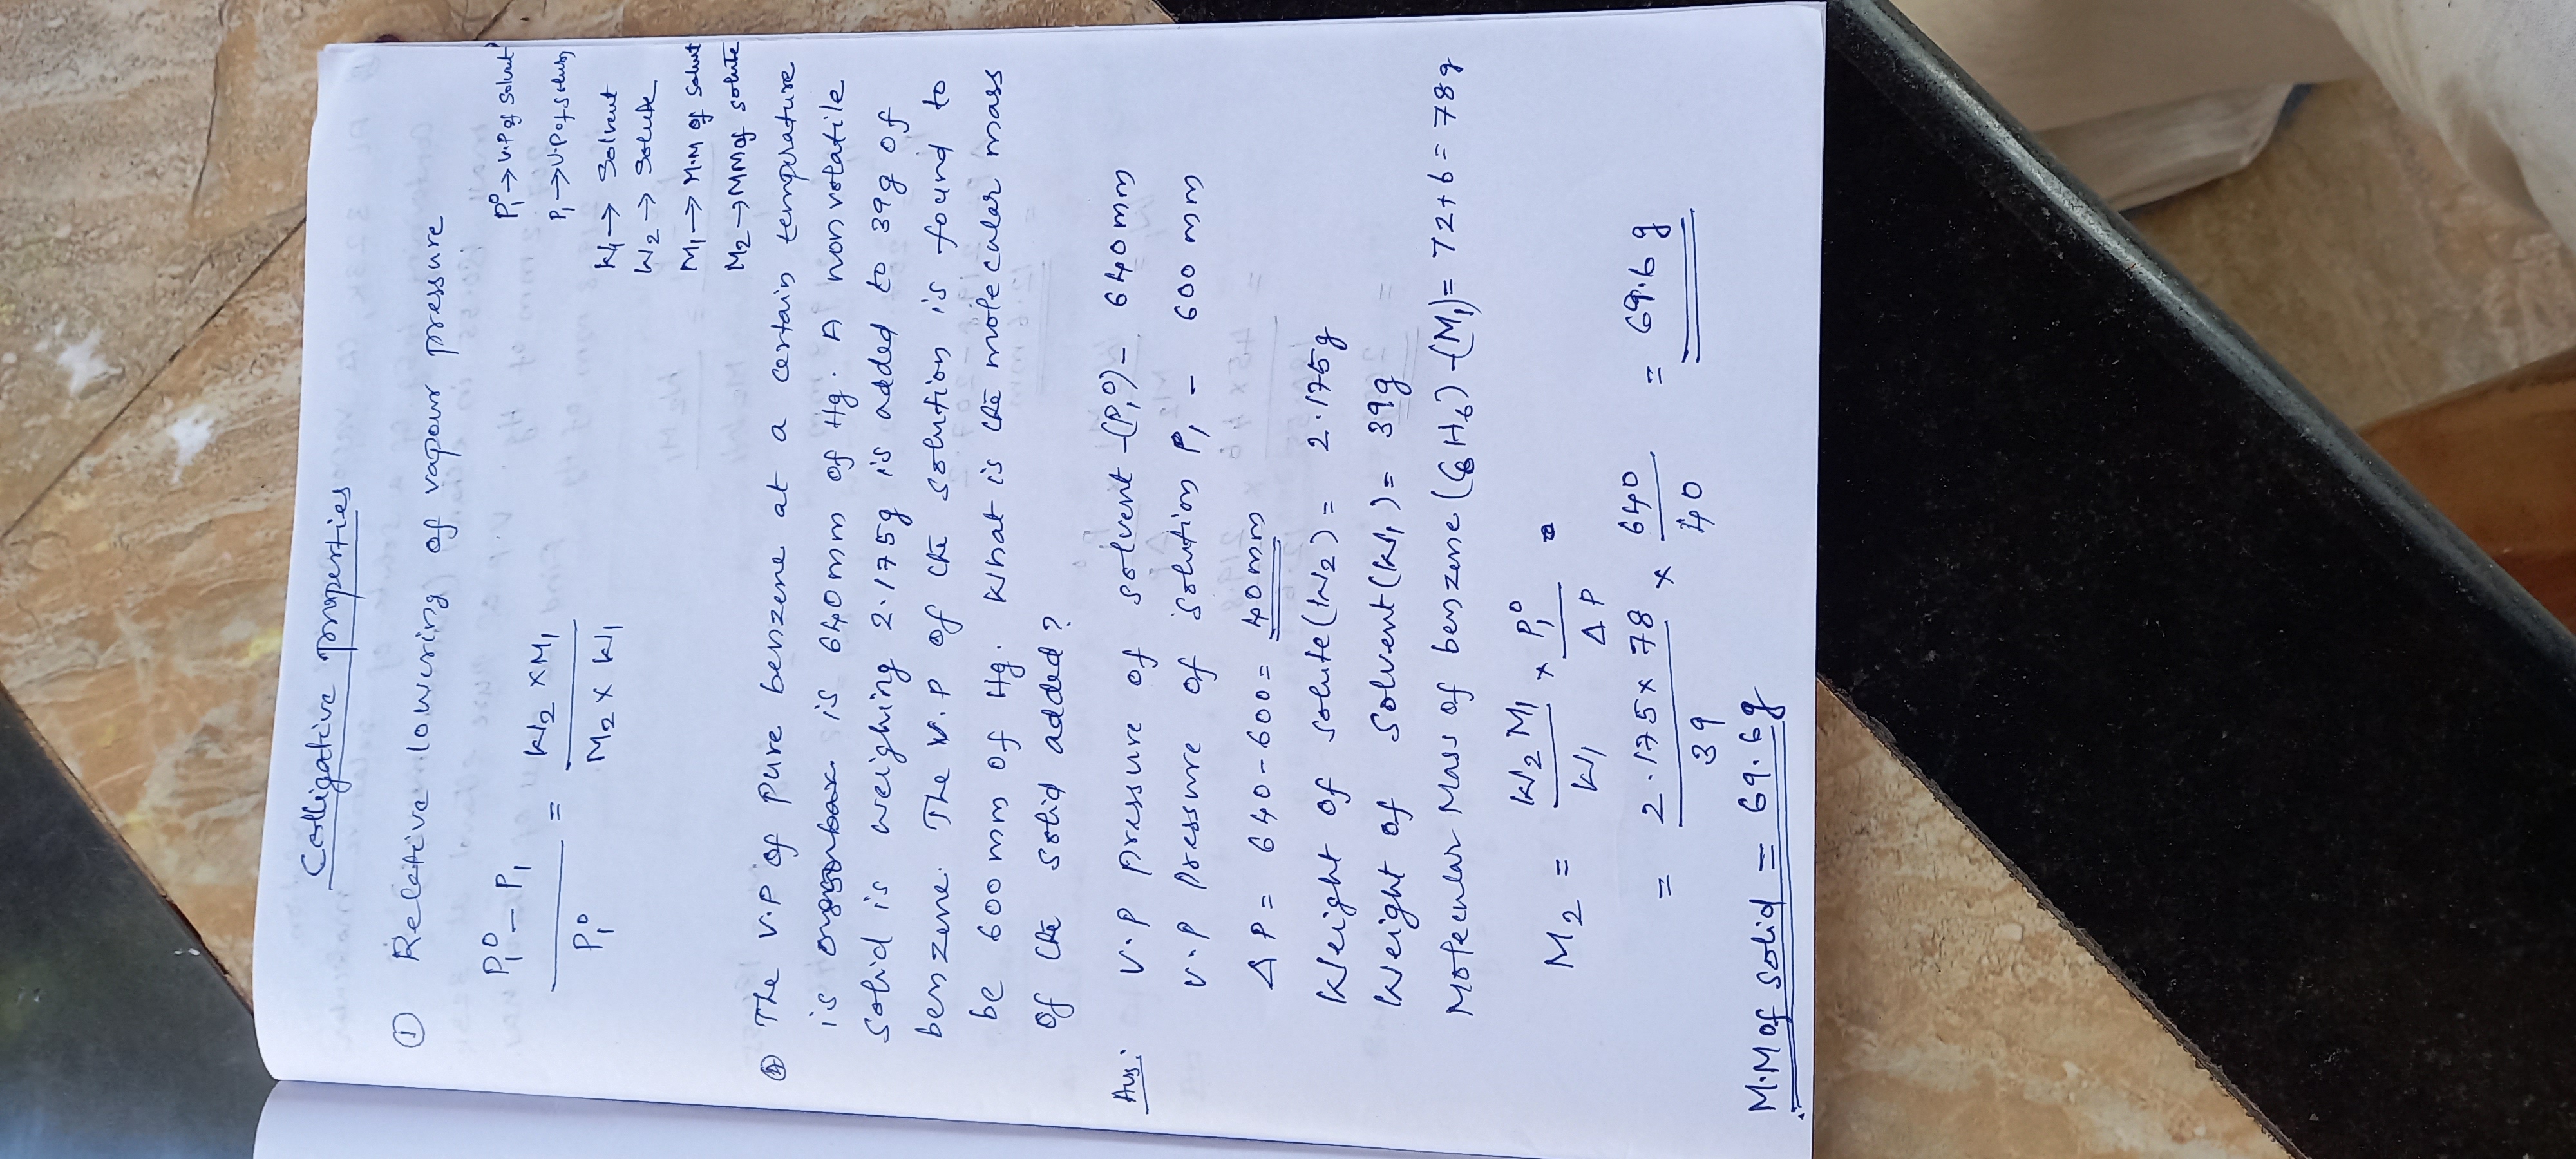 Colligative properties
① Reletive lowering of vapour pressure
P₁⁰ - P₁ / P₁⁰ = W₂ × M₁ / M₂ × W₁
P₁⁰ → V.P of Solvent
P₁ → V.P of solution
W₁ → Solvent
W₂ → Solute
M₁ → M.M of Solvent
M₂ → MM of solute
The V.P of pure benzene at a certain temperature
is is 640mm of Hg. A non volatile
Solid is weighing 2.175g is added to 39g of
benzene. The V.P of the solution is found to
be 600 mm of Hg. What is the molecular mass
of the solid added?
Ans: V.P pressure of solvent -(P₁⁰) - 640mm
V.P Pressure of Solution P₁ - 600 mm
ΔP = 640-600 = 40mm
Weight of solute (W₂) = 2.175g
Weight of Solvent (W₁) = 39g
Molecular Mass of benzene (C₆H₆) -(M₁) = 72+6 = 78g
M₂ = W₂ M₁ / W₁ × P₁⁰ / ΔP
= 2.175 × 78 / 39 × 640 / 40 = 69.6 g
M.M of solid = 69.6g